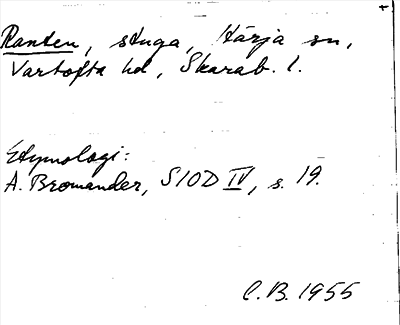 Ranten, stuga, Härja sn,
Vartofta hd, Skarab. l.
Etymologi:
A. Bromander, SIOD IV, s. 19.
C.B. 1955